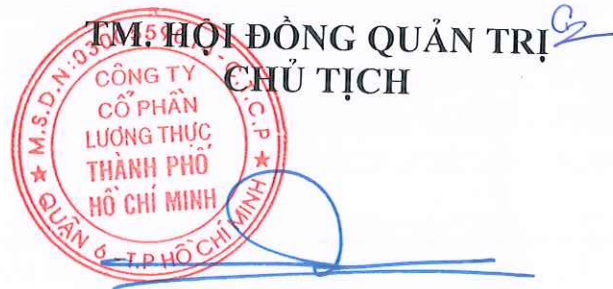 TM. HỘI ĐỒNG QUẢN TRỊ
CHỦ TỊCH
CÔNG TY
CỔ PHẦN
LƯƠNG THỰC
THÀNH PHỐ
HỒ CHÍ MINH
C.T.C.P
QUẬN 6 - T.P HỒ CHÍ MINH